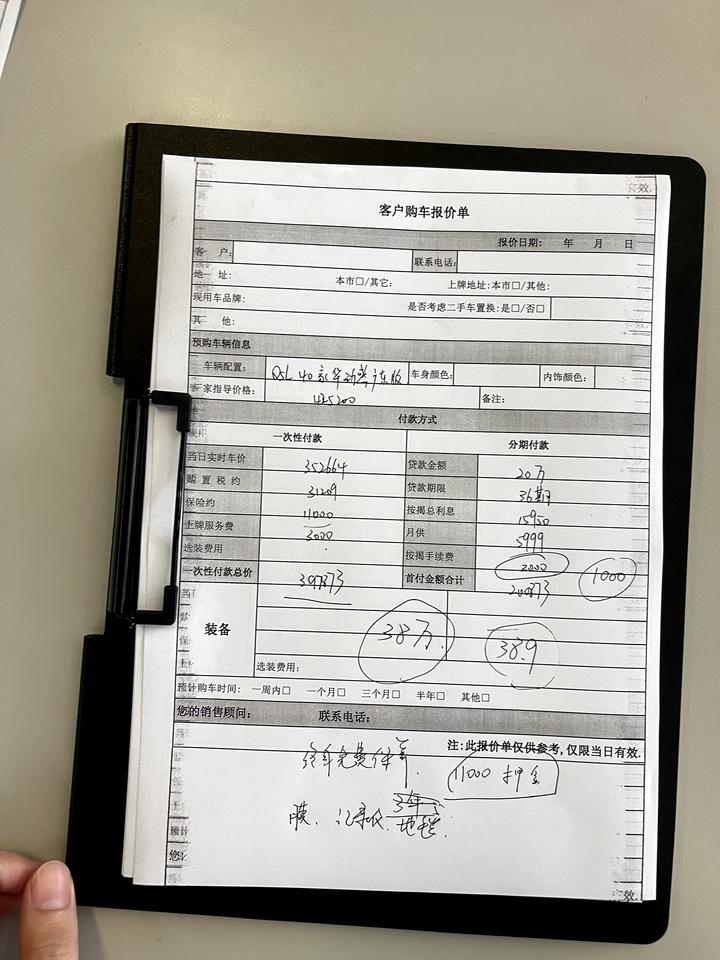 有效.
客户购车报价单
报价日期: 年 月 日
客 户: 联系电话:
地 址: 本市□/其它: 上牌地址:本市□/其他:
现用车品牌: 是否考虑二手车置换:是□/否□
其 他:
预购车辆信息
车辆配置: Q5L 40豪华动感 车身颜色: 内饰颜色:
厂家指导价格: 425200 备注:
付款方式
一次性付款 分期付款
当日实时车价 352664 贷款金额 20万
购 置 税 约 31209 贷款期限 36期
保险约 11000 按揭总利息 15950
上牌服务费 3000 月供 5999
选装费用 按揭手续费 2000 1000
一次性付款总价 397873 首付金额合计 200873
装备
38万 38.9
选装费用:
预计购车时间: 一周内□ 一个月□ 三个月□ 半年□ 其他□
您的销售顾问: 联系电话:
注:此报价单仅供参考,仅限当日有效.
终身免费保养. 11000 押金
3年
膜、记录仪. 地毯.
预计
您
效.